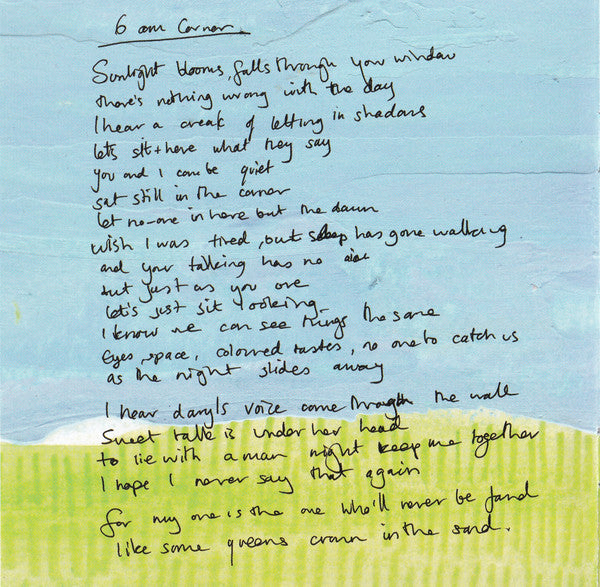 6 am Corner.
Sunlight blooms, falls through your window
there's nothing wrong with the day
I hear a creak of letting in shadows
lets sit + here what they say
you and I can be quiet
sat still in the corner
let no-one in here but the dawn
wish I was tired, but sleep has gone walking
and your talking has no aim
but just as you are
let's just sit looking.
I know we can see things the same
Eyes, space, coloured tastes, no one to catch us
as the night slides away
I hear daryls voice come through the wall
Sweet talk is under her head
to lie with a man might keep me together
I hope I never say that again
for my one is the one who'll never be found
like some queens crown in the sand.